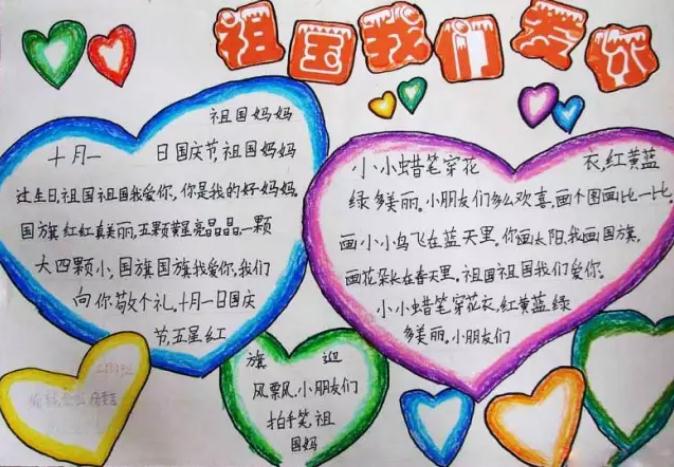 祖国我们爱你
祖国妈妈
十月一 日国庆节,祖国妈妈
过生日,祖国祖国我爱你,你是我的好妈妈。
国旗红红真美丽,五颗黄星亮晶晶,一颗
大四颗小,国旗国旗我爱你,我们
向你敬个礼,十月一日国庆
节,五星红
小小蜡笔穿花 衣,红黄蓝
绿多美丽。小朋友们多么欢喜,画个图画比一比。
画小小鸟飞在蓝天里。你画太阳,我画国旗,
画花朵长在春天里。祖国祖国我们爱你。
小小蜡笔穿花衣,红黄蓝绿
多美丽。小朋友们
旗 迎
风飘风,小朋友们
拍手笑,祖
国妈